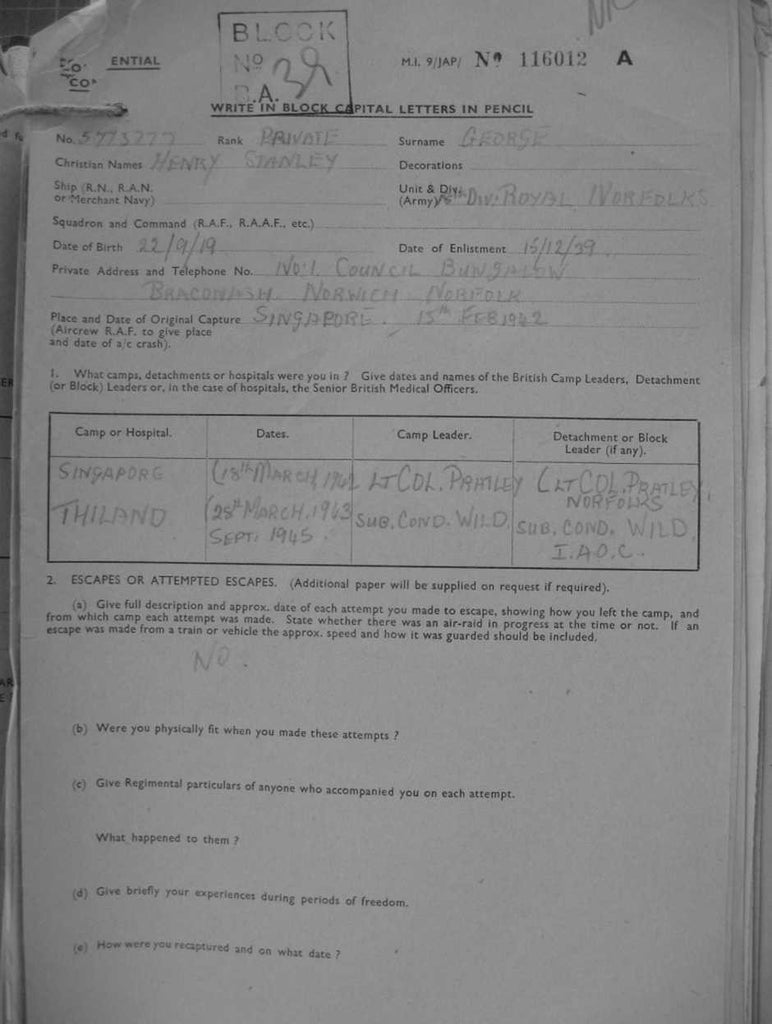 BLOCK
ENTIAL Nº 38 M.I. 9/JAP/ Nº 116012 A
CO
B.A.
WRITE IN BLOCK CAPITAL LETTERS IN PENCIL
No. 5773277 Rank PRIVATE Surname GEORGE
Christian Names HENRY STANLEY Decorations
Ship (R.N., R.A.N. Unit & Div.
or Merchant Navy) (Army) 18th DIV. ROYAL NORFOLKS
Squadron and Command (R.A.F., R.A.A.F., etc.)
Date of Birth 22/9/19 Date of Enlistment 15/12/39
Private Address and Telephone No. NO.1. COUNCIL BUNGALOW
BRACONASH NORWICH NORFOLK
Place and Date of Original Capture SINGAPORE. 15TH FEB 1942
(Aircrew R.A.F. to give place
and date of a/c crash).
1. What camps, detachments or hospitals were you in ? Give dates and names of the British Camp Leaders, Detachment
(or Block) Leaders or, in the case of hospitals, the Senior British Medical Officers.
Camp or Hospital. Dates. Camp Leader. Detachment or Block
Leader (if any).
SINGAPORE (18th MARCH, 1942 LT COL. PRATLEY (LT COL. PRATLEY,
NORFOLKS
THILAND (28th MARCH, 1943 SUB. COND. WILD SUB. COND. WILD,
SEPT. 1945 I.A.O.C.
2. ESCAPES OR ATTEMPTED ESCAPES. (Additional paper will be supplied on request if required).
(a) Give full description and approx. date of each attempt you made to escape, showing how you left the camp, and
from which camp each attempt was made. State whether there was an air-raid in progress at the time or not. If an
escape was made from a train or vehicle the approx. speed and how it was guarded should be included.
NO.
(b) Were you physically fit when you made these attempts ?
(c) Give Regimental particulars of anyone who accompanied you on each attempt.
What happened to them ?
(d) Give briefly your experiences during periods of freedom.
(e) How were you recaptured and on what date ?